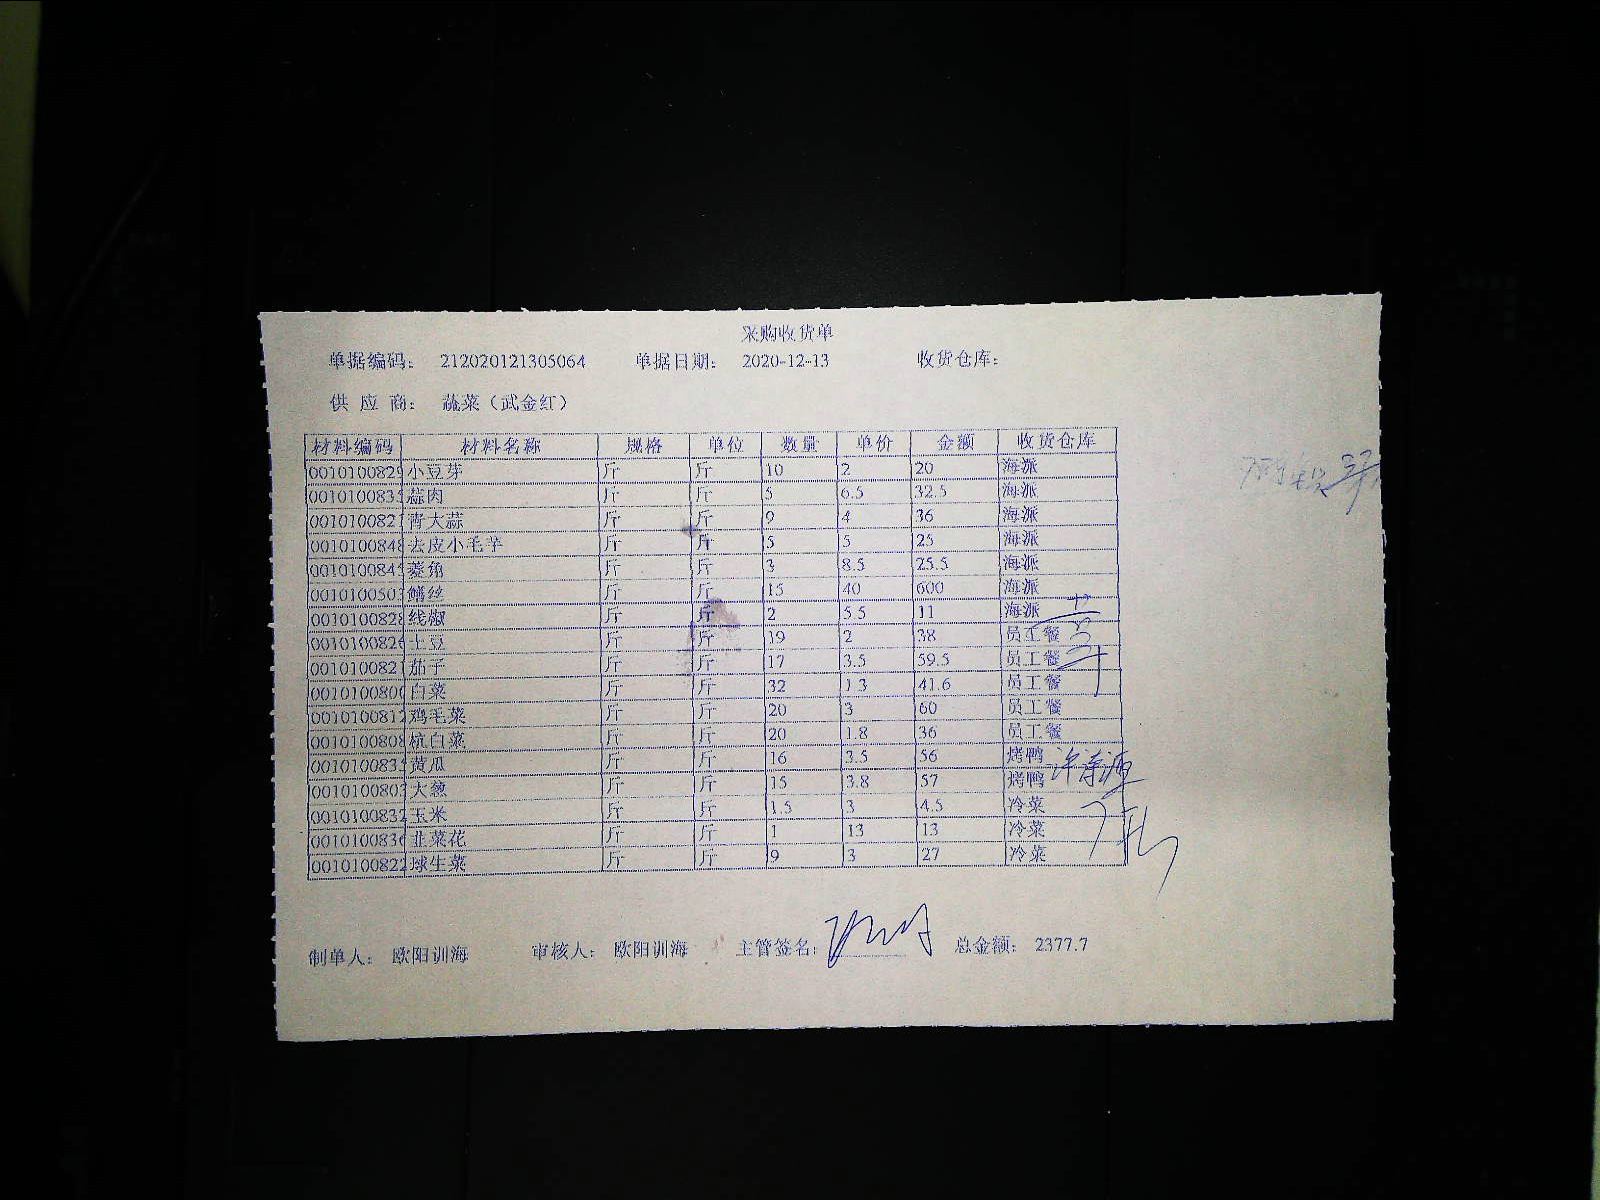 采购收货单
单据编码： 212020121305064 单据日期： 2020-12-13 收货仓库：
供 应 商： 蔬菜（武金红）
材料编码 材料名称 规格 单位 数量 单价 金额 收货仓库
0010100829 小豆芽 斤 斤 10 2 20 海派
001010083 蒜肉 斤 斤 5 6.5 32.5 海派
001010082 青大蒜 斤 斤 9 4 36 海派
001010084 去皮小毛芋 斤 斤 5 5 25 海派
001010084 菱角 斤 斤 3 8.5 25.5 海派
001010050 鳝丝 斤 斤 15 40 600 海派
001010082 线椒 斤 斤 2 5.5 11 海派
001010082 土豆 斤 斤 19 2 38 员工餐
001010082 茄子 斤 斤 17 3.5 59.5 员工餐
001010080 白菜 斤 斤 32 1.3 41.6 员工餐
001010081 鸡毛菜 斤 斤 20 3 60 员工餐
001010080 杭白菜 斤 斤 20 1.8 36 员工餐
001010083 黄瓜 斤 斤 16 3.5 56 烤鸭
001010080 大葱 斤 斤 15 3.8 57 烤鸭
001010083 玉米 斤 斤 1.5 3 4.5 冷菜
001010083 韭菜花 斤 斤 1 13 13 冷菜
0010100822 球生菜 斤 斤 9 3 27 冷菜
制单人： 欧阳训海 审核人： 欧阳训海 主管签名： 总金额： 2377.7